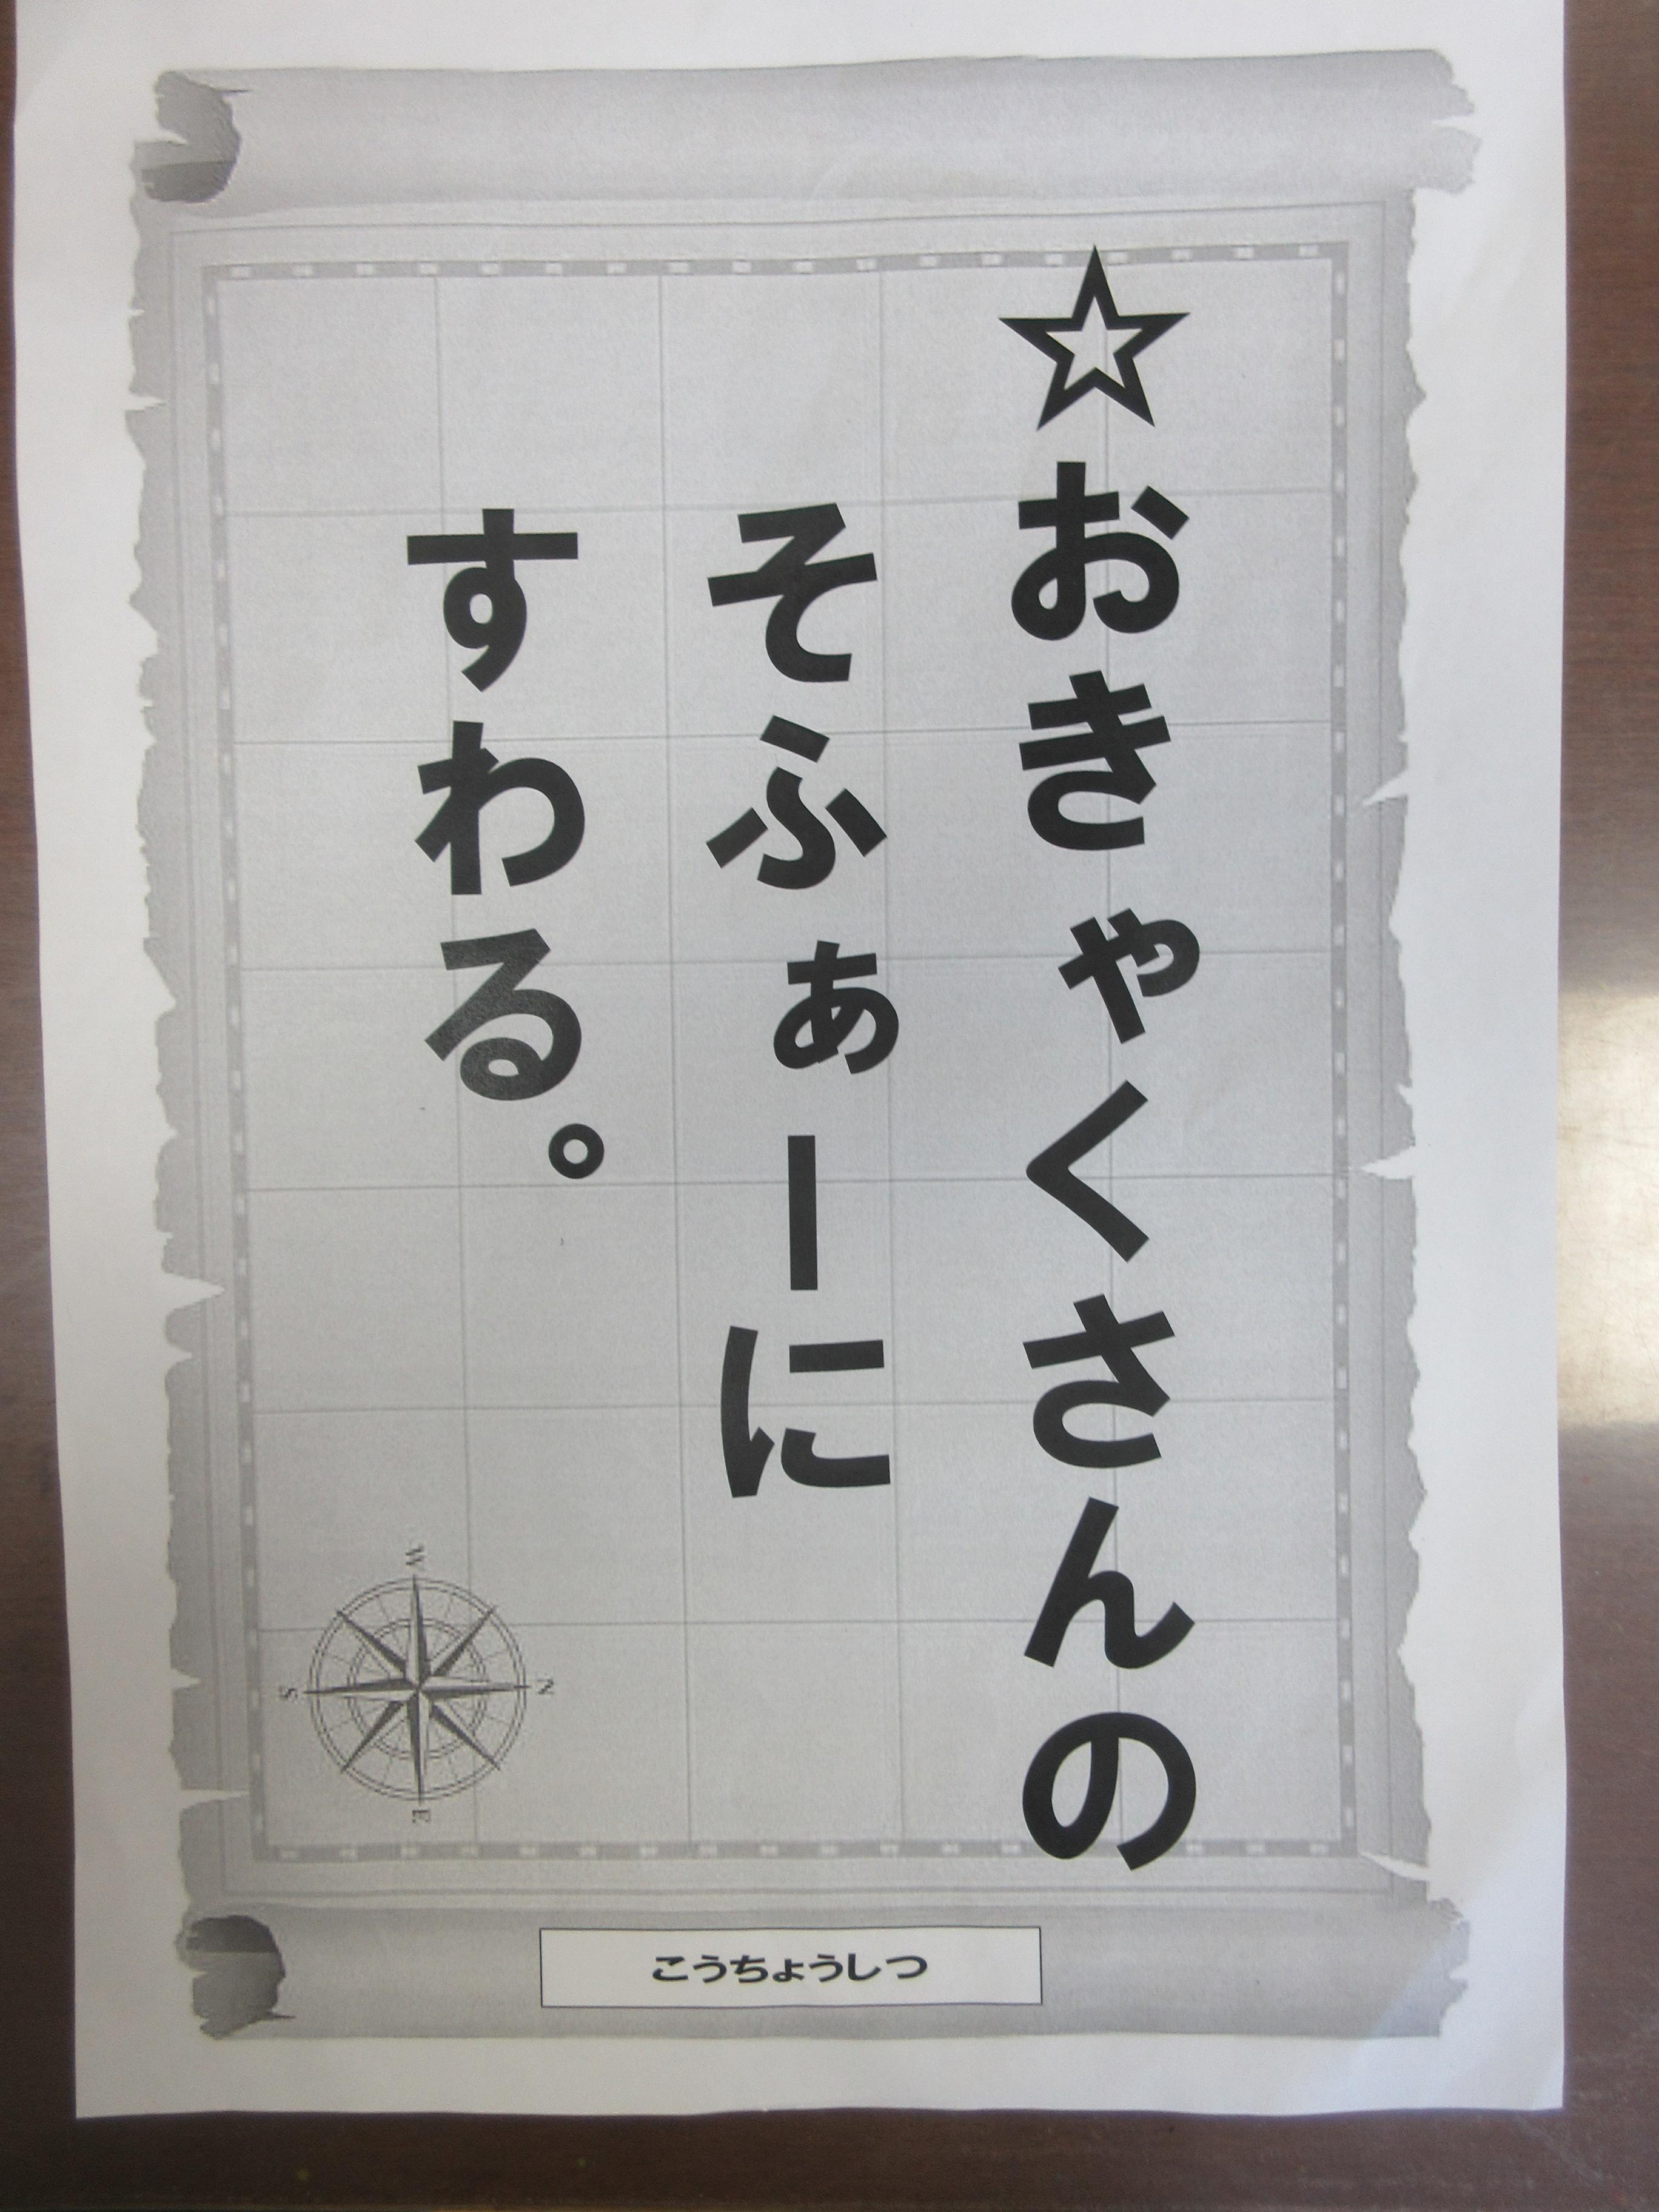 ☆おきゃくさんの
そふぁーに
すわる。
W
N
S
E
こうちょうしつ